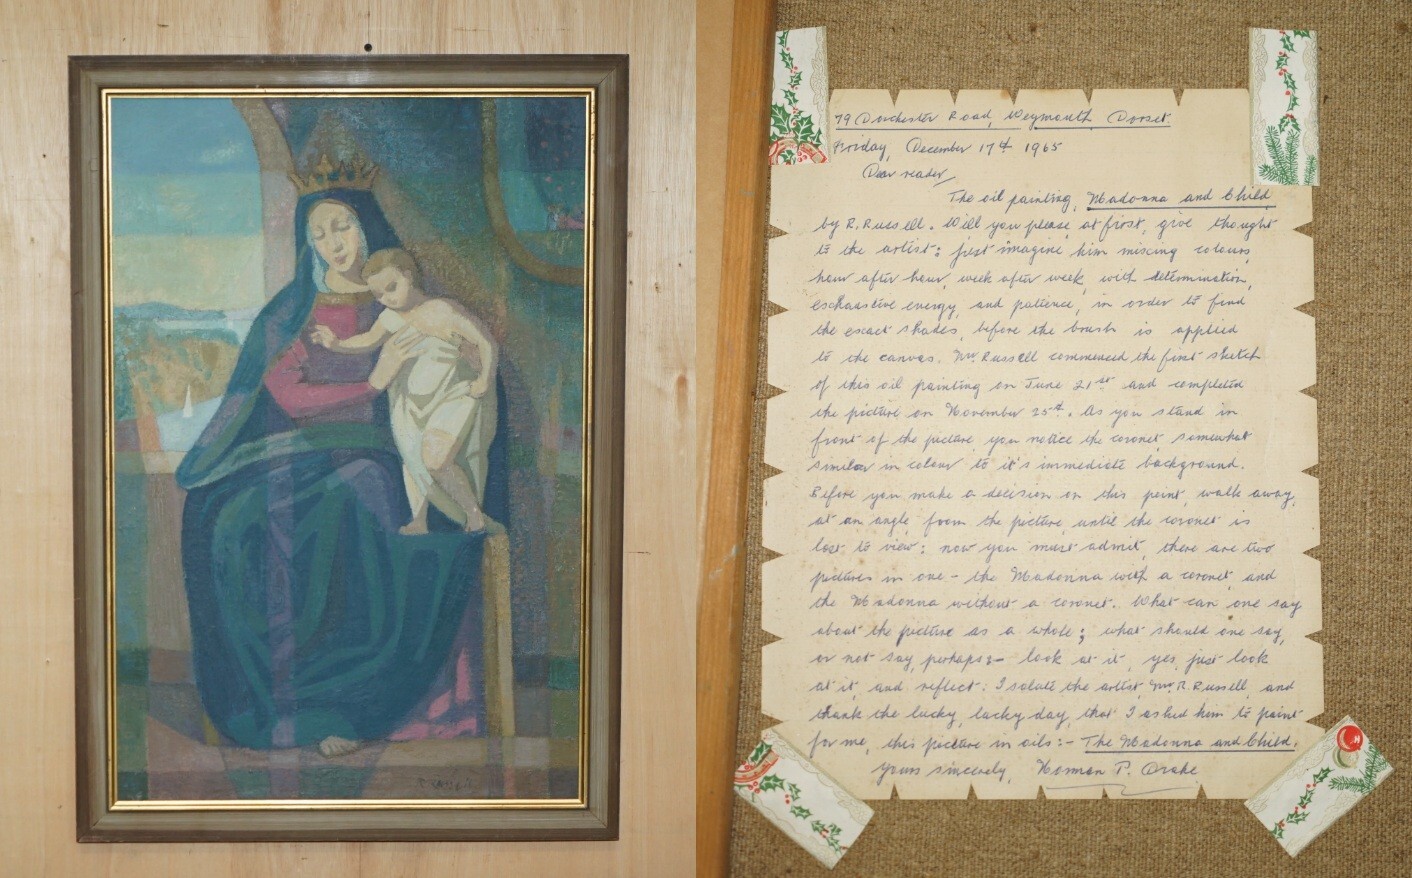 79 Dorchester Road, Weymouth, Dorset
Friday, December 17th 1965
Dear reader,
The oil painting, Madonna and Child,
by R. Russell. Will you please, at first, give thought
to the artist: just imagine him mixing colours,
hour after hour, week after week, with determination,
exhaustive energy, and patience, in order to find
the exact shades, before the brush is applied
to the canvas. Mr Russell commenced the first sketch
of this oil painting on June 21st and completed
the picture on November 25th. As you stand in
front of the picture you notice the coronet somewhat
similar in colour to it's immediate background.
Before you make a decision on this point, walk away,
at an angle from the picture, until the coronet is
lost to view: now you must admit, there are two
pictures in one - the Madonna with a coronet, and
the Madonna without a coronet. What can one say
about the picture as a whole; what should one say,
or not say, perhaps:- look at it, yes, just look
at it, and reflect: I salute the artist, Mr. R. Russell, and
thank the lucky, lucky day, that I asked him to paint
for me, this picture in oils:- The Madonna and Child.
Yours sincerely, Norman P. Drake